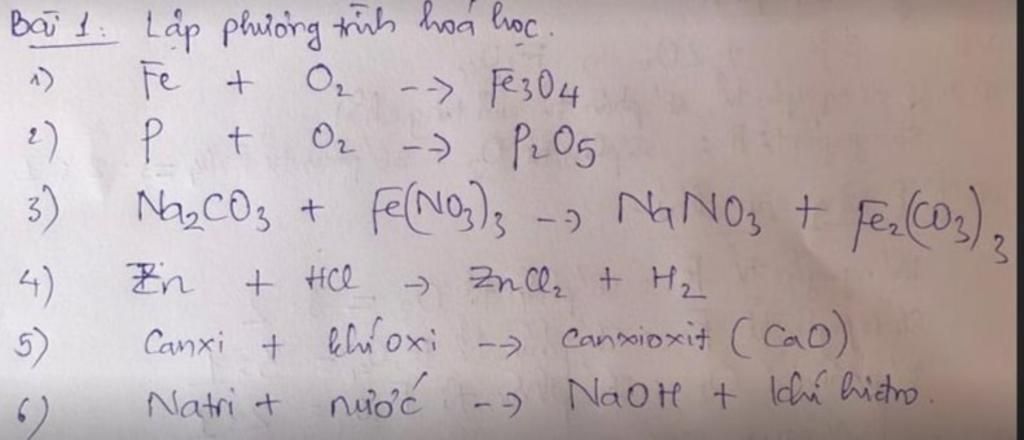 Bài 1: Lập phương trình hoá học.
1) Fe + O₂ --> Fe₃O₄
2) P + O₂ --> P₂O₅
3) Na₂CO₃ + Fe(NO₃)₃ --> NaNO₃ + Fe₂(CO₃)₃
4) Zn + HCl → ZnCl₂ + H₂
5) Canxi + khí oxi --> canxioxit (CaO)
6) Natri + nước --> NaOH + khí hiđro.